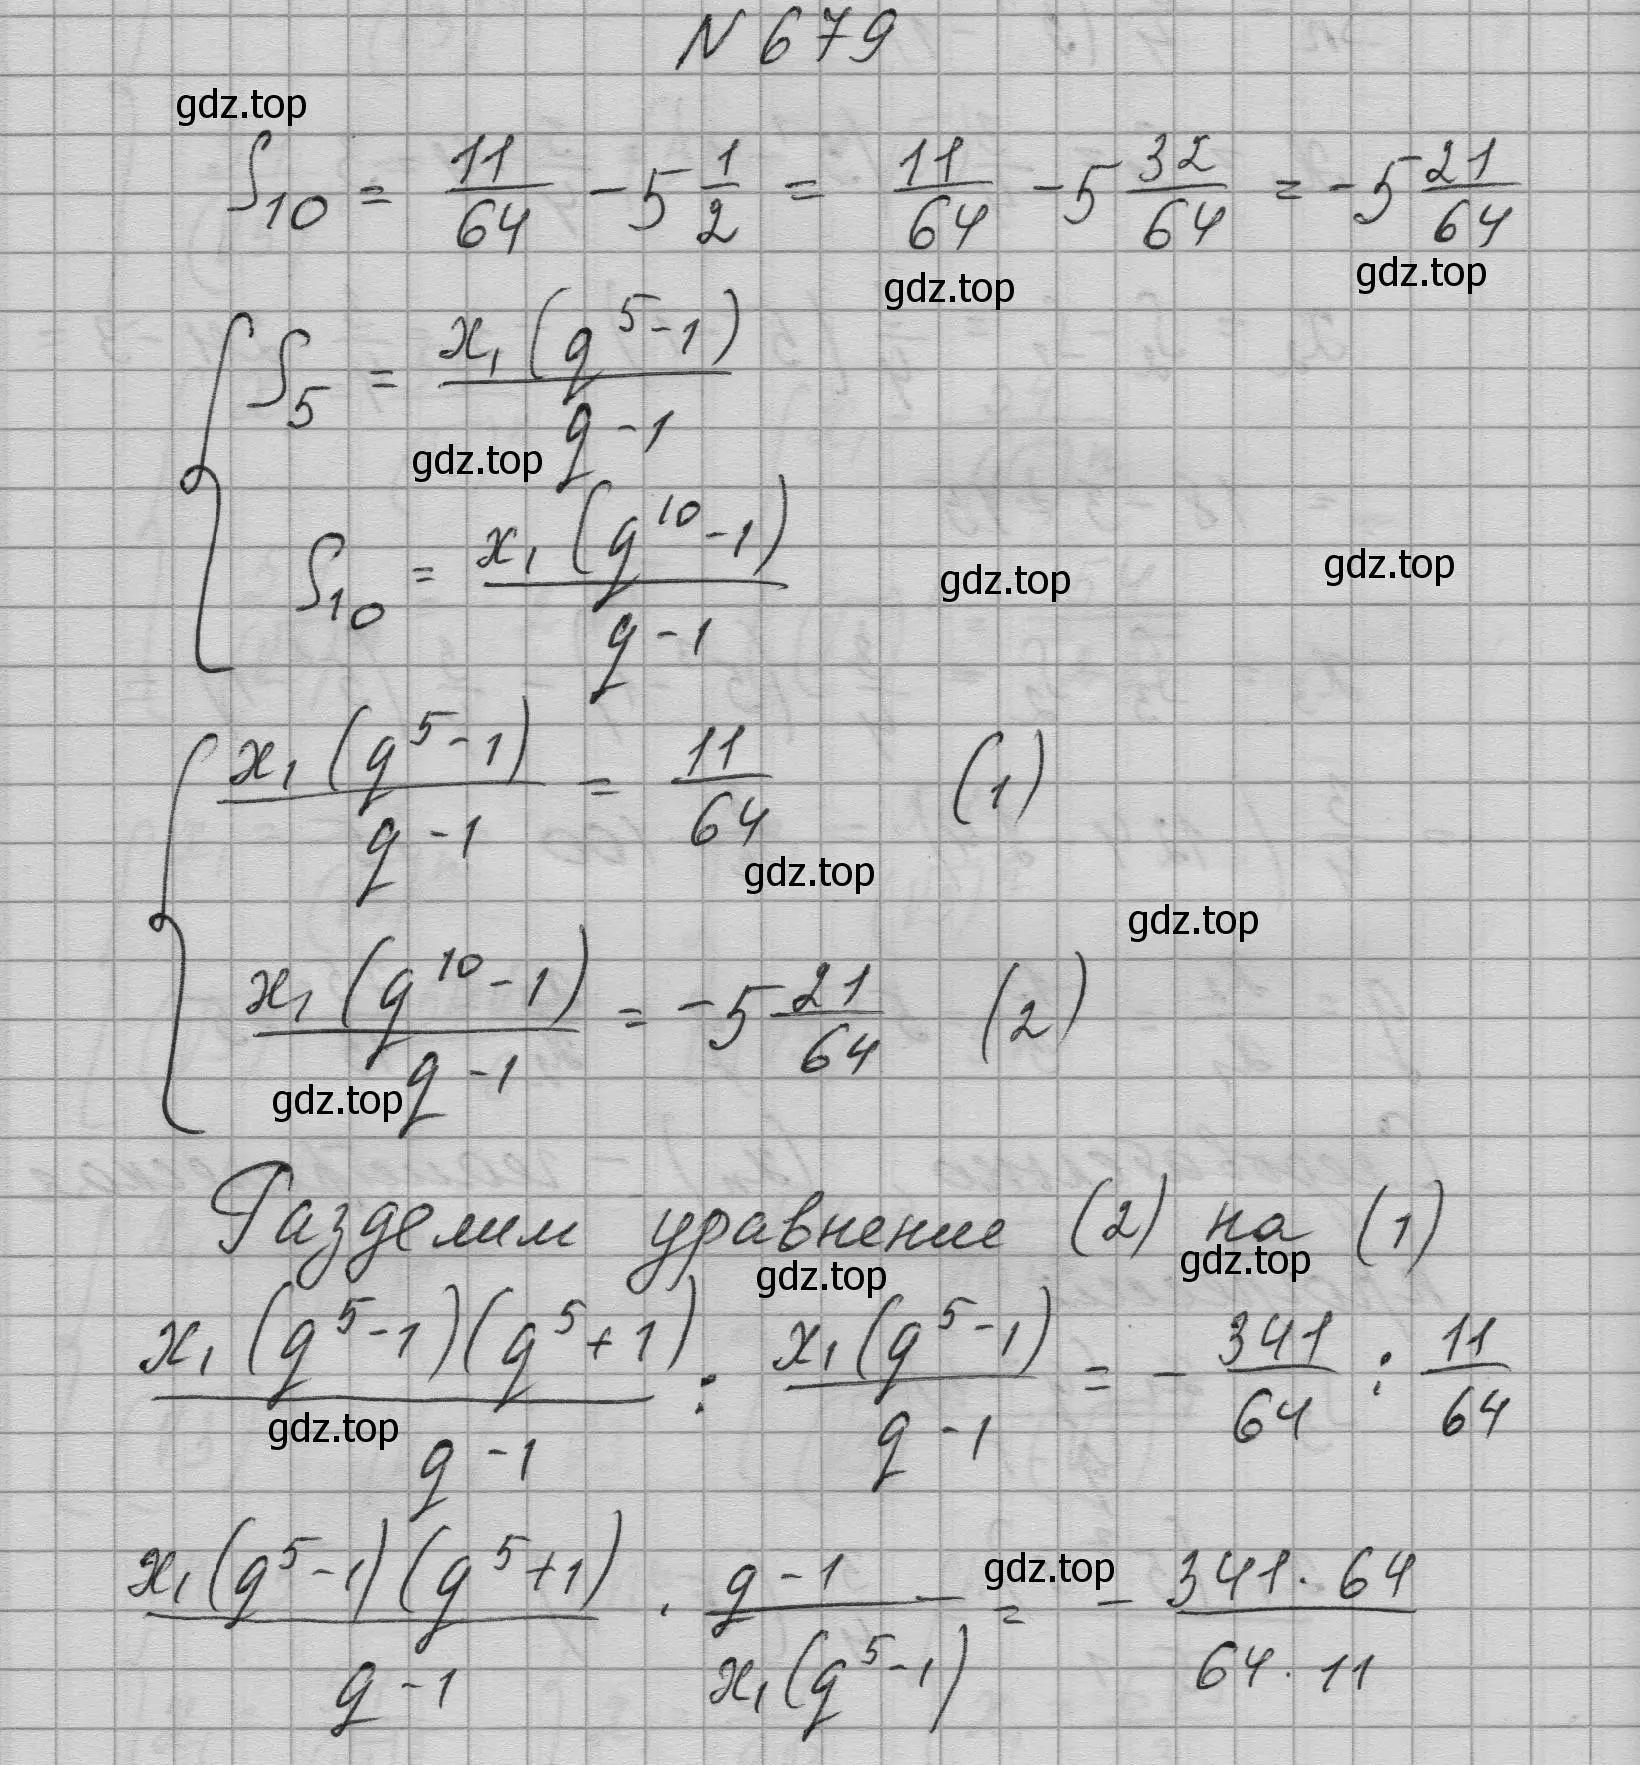 N 679
gdz.top
S₁₀ = 11/64 - 5 1/2 = 11/64 - 5 32/64 = -5 21/64
gdz.top gdz.top
{ S₅ = x₁(q⁵-1)/(q-1)
gdz.top
S₁₀ = x₁(q¹⁰-1)/(q-1)
gdz.top gdz.top
{ x₁(q⁵-1)/(q-1) = 11/64 (1)
gdz.top
gdz.top
x₁(q¹⁰-1)/(q-1) = -5 21/64 (2)
gdz.top
Разделим уравнение (2) на (1)
gdz.top gdz.top
x₁(q⁵-1)(q⁵+1)/(q-1) : x₁(q⁵-1)/(q-1) = - 341/64 : 11/64
gdz.top
x₁(q⁵-1)(q⁵+1)/(q-1) · (q-1)/x₁(q⁵-1) = - 341·64/64·11
gdz.top